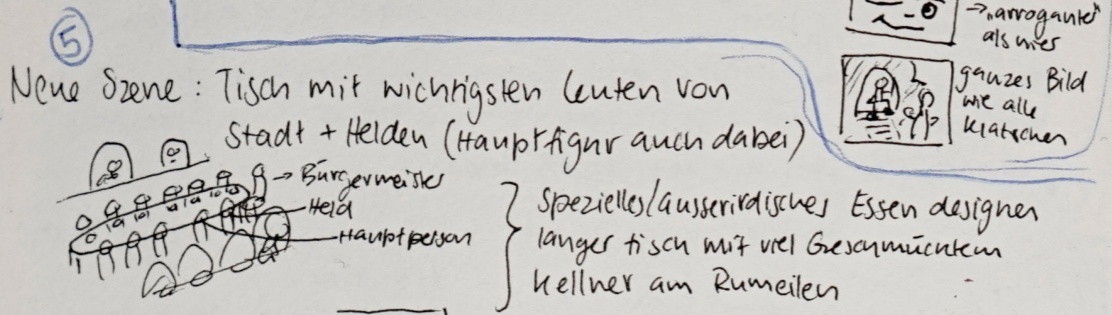 → „arrogante"
als vier
ganzes Bild
wie alle
klatschen
5
Neue Szene: Tisch mit wichtigsten Leuten von
Stadt + Helden (Hauptfigur auch dabei)
→ Bürgermeister
Held
Hauptperson
Spezielles/ausserirdisches Essen designen
langer tisch mit viel Geschmücktem
Kellner am Rumeilen